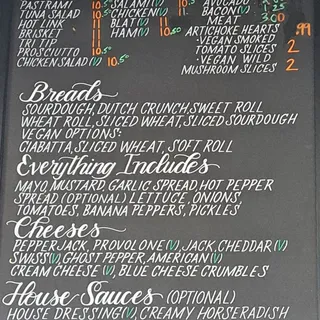 PASTRAMI 10.5 SALAMI(V) 11. AVOCADO 1.25
TUNA SALAD 10.5 CHICKEN(V) 11. BACON(V)
HOT LINK BLAT(V) 11. MEAT 3.00
BRISKET 11. HAM(V) 10.50 ARTICHOKE HEARTS .99
TRI TIP 11. VEGAN SMOKED
PROSCIUTTO TOMATO SLICES 2
CHICKEN SALAD(V) 10.50 VEGAN WILD
MUSHROOM SLICES 2
Breads
SOURDOUGH, DUTCH CRUNCH, SWEET ROLL
WHEAT ROLL, SLICED WHEAT, SLICED SOURDOUGH
VEGAN OPTIONS:
CIABATTA, SLICED WHEAT, SOFT ROLL
Everything Includes
MAYO, MUSTARD, GARLIC SPREAD, HOT PEPPER
SPREAD (OPTIONAL) LETTUCE, ONIONS,
TOMATOES, BANANA PEPPERS, PICKLES
Cheeses
PEPPERJACK, PROVOLONE(V), JACK, CHEDDAR(V)
SWISS(V), GHOST PEPPER, AMERICAN(V)
CREAM CHEESE(V), BLUE CHEESE CRUMBLES
House Sauces (OPTIONAL)
HOUSE DRESSING(V), CREAMY HORSERADISH